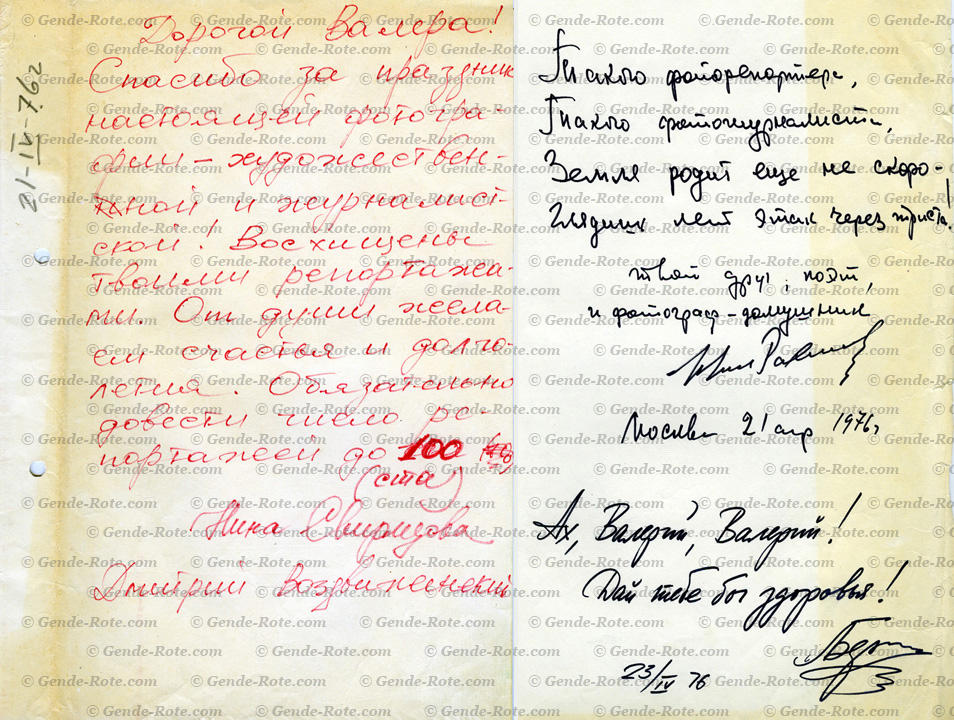 Дорогой Валера!
Спасибо за праздник
настоящей фотогра-
фии – художествен-
ной и журналист-
ской! Восхищены
твоими репортажа-
ми. От души жела-
ем счастья и долго-
летия. Обязательно
довести число ре-
портажей до 100
(ста)
Нина Свиридова
Дмитрий Воздвиженский
21-IV-76г
Такого фоторепортера,
Такого фотожурналиста,
Земля родит еще не скоро –
Глядишь лет этак через триста!
твой друг, поэт,
и фотограф-домушник
Москва 21 апр 1976г
Ах, Валерий, Валерий!
Дай тебе бог здоровья!
23/IV 76
© Gende-Rote.com